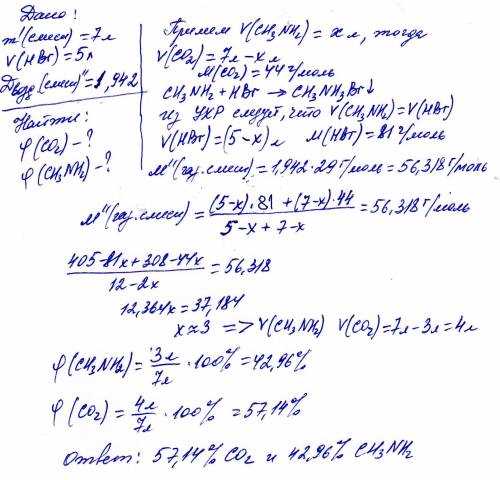 Дано:
m'(смеси) = 7л
V(HBr) = 5л
Dвозд.(смеси)" = 1,942
Найти:
φ(CO2) - ?
φ(CH3NH2) - ?
Примем V(CH3NH2) = x л, тогда
V(CO2) = 7л - xл
M(CO2) = 44 г/моль
CH3NH2 + HBr → CH3NH3Br↓
из УХР следует, что V(CH3NH2) = V(HBr)
V(HBr) = (5-x) л M(HBr) = 81 г/моль
M"(газ. смеси) = 1,942·29 г/моль = 56,318 г/моль
M"(газ. смеси) = (5-x)·81 + (7-x)·44 / 5-x + 7-x = 56,318 г/моль
405-81x+308-44x / 12-2x = 56,318
12,364x = 37,184
x ≈ 3 => V(CH3NH2) V(CO2) = 7л - 3л = 4л
φ(CH3NH2) = 3л / 7л · 100% = 42,96%
φ(CO2) = 4л / 7л · 100% = 57,14%
Ответ: 57,14% CO2 и 42,96% CH3NH2